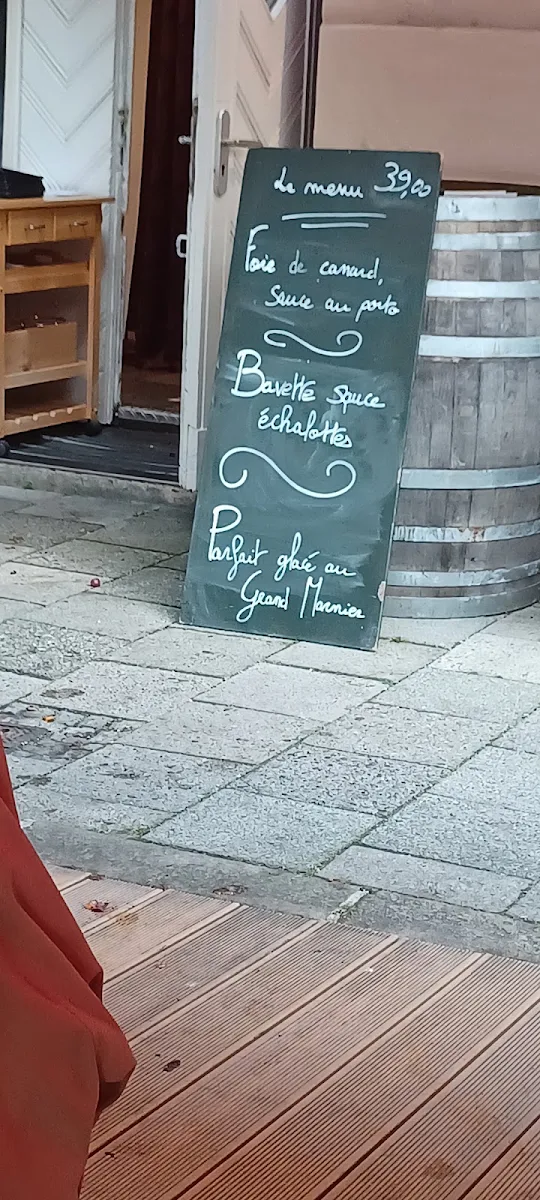 Le menu 39,00
Foie de canard,
Sauce au porto
Bavette sauce
échalottes
Parfait glacé au
Grand Marnier